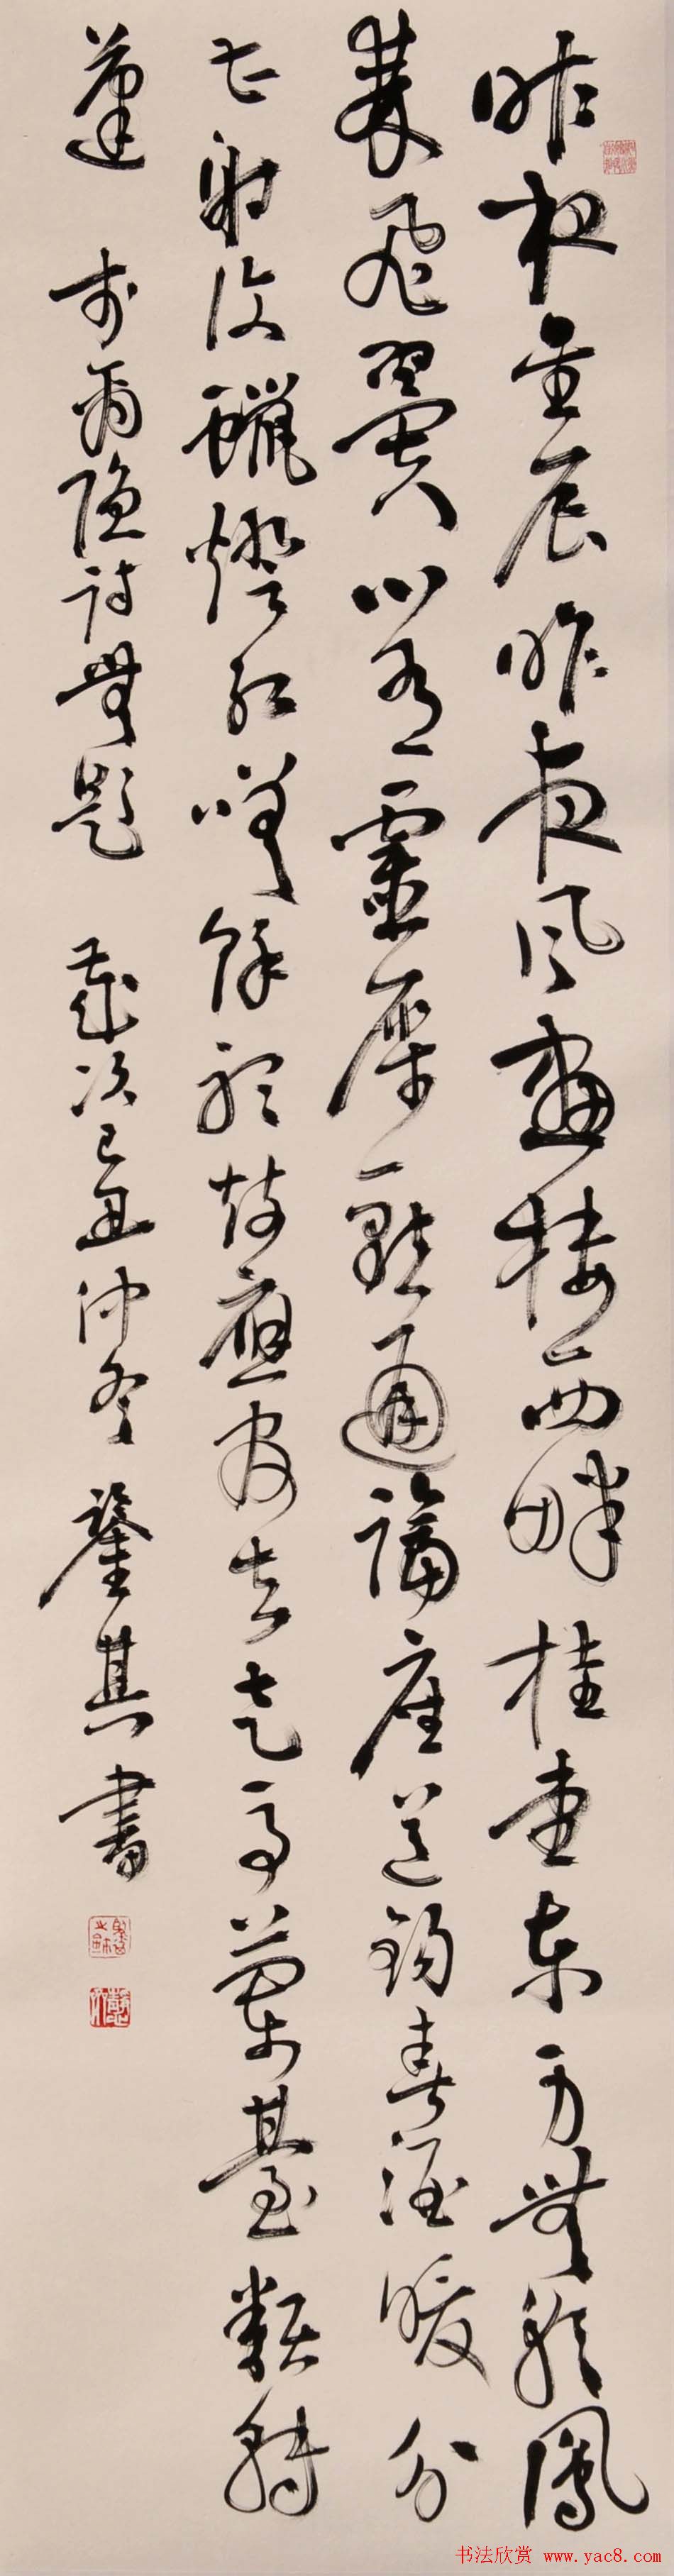 昨夜星辰昨夜风畫楼西畔桂堂东身無彩鳳
雙飛翼心有靈犀一點通隔座送鉤春酒暖分
曹射覆蠟燈紅嗟餘聽鼓應官去走馬蘭臺類轉
蓬 李商隐詩無題 歲次己丑仲冬 其書
书法欣赏 www.yac8.com